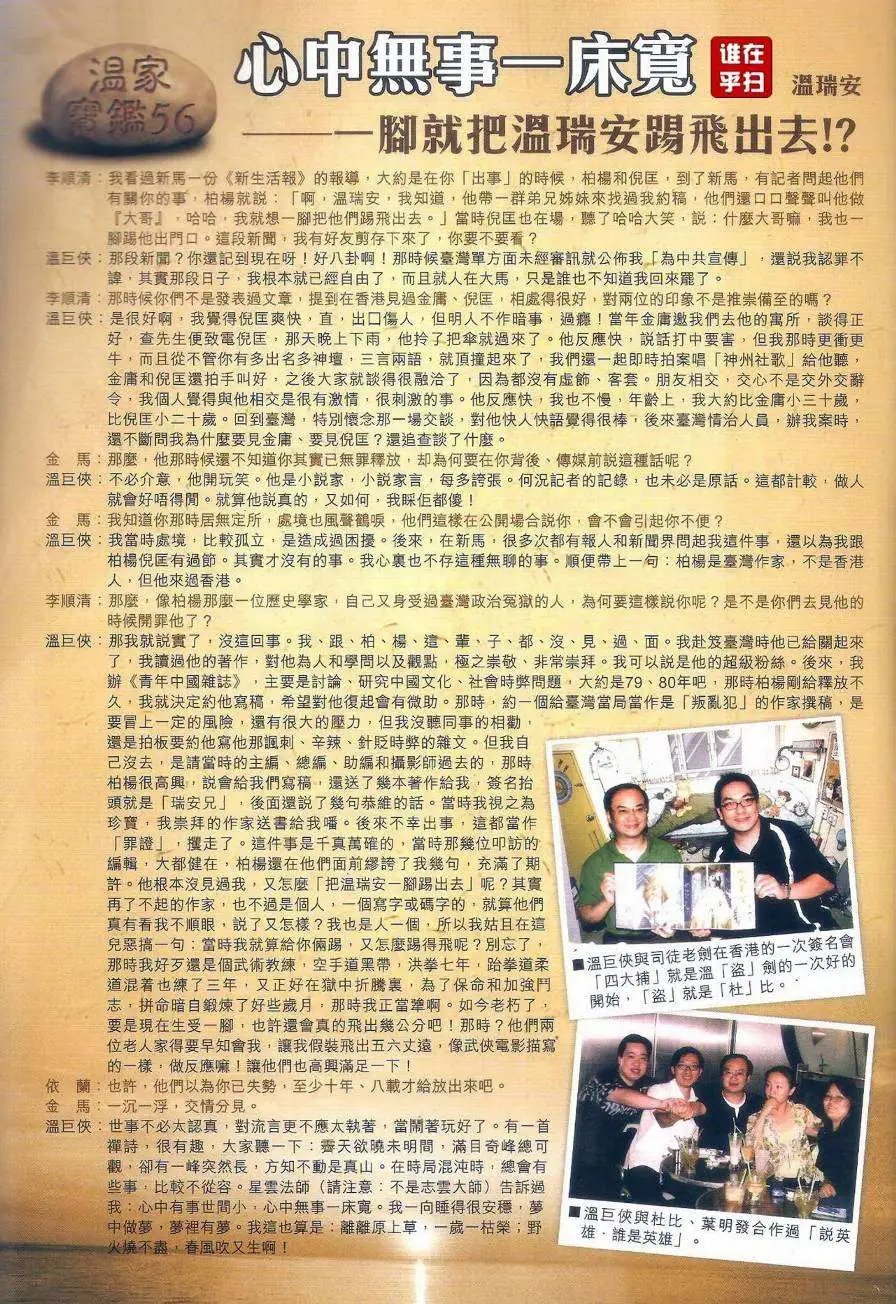 溫家
寶鑑56
心中無事一床寬
谁在
乎扫
溫瑞安
——一腳就把溫瑞安踢飛出去!?
李順清：我看過新馬一份《新生活報》的報導，大約是在你「出事」的時候，柏楊和倪匡，到了新馬，有記者問起他們
有關你的事，柏楊就說：「啊，溫瑞安，我知道，他帶一群弟兄姊妹來找過我約稿，他們還口口聲聲叫他做
『大哥』，哈哈，我就想一腳把他們踢飛出去。」當時倪匡也在場，聽了哈哈大笑，說：什麼大哥嘛，我也一
腳踢他出門口。這段新聞，我有好友剪存下來了，你要不要看？
溫巨俠：那段新聞？你還記到現在呀！好八卦啊！那時候臺灣單方面未經審訊就公佈我「為中共宣傳」，還說我認罪不
諱，其實那段日子，我根本就已經自由了，而且就人在大馬，只是誰也不知道我回來罷了。
李順清：那時候你們不是發表過文章，提到在香港見過金庸、倪匡，相處得很好，對兩位的印象不是推崇備至的嗎？
溫巨俠：是很好啊，我覺得倪匡爽快，直，出口傷人，但明人不作暗事，過癮！當年金庸邀我們去他的寓所，談得正
好，查先生便致電倪匡，那天晚上下雨，他拎了把傘就過來了。他反應快，說話打中要害，但我那時更衝更
牛，而且從不管你有多出名多神壇，三言兩語，就頂撞起來了，我們還一起即時拍案唱「神州社歌」給他聽，
金庸和倪匡還拍手叫好，之後大家就談得很融洽了，因為都沒有虛飾、客套。朋友相交，交心不是交外交辭
令，我個人覺得與他相交是很有激情，很刺激的事。他反應快，我也不慢，年齡上，我大約比金庸小三十歲，
比倪匡小二十歲。回到臺灣，特別懷念那一場交談，對他快人快語覺得很棒，後來臺灣情治人員，辦我案時，
還不斷問我為什麼要見金庸、要見倪匡？還追查談了什麼。
金　馬：那麼，他那時候還不知道你其實已無罪釋放，却為何要在你背後、傳媒前說這種話呢？
溫巨俠：不必介意，他開玩笑。他是小說家，小說家言，每多誇張。何況記者的記錄，也未必是原話。這都計較，做人
就會好唔得閒。就算他說真的，又如何，我睬佢都儍！
金　馬：我知道你那時居無定所，處境也風聲鶴唳，他們這樣在公開場合說你，會不會引起你不便？
溫巨俠：我當時處境，比較孤立，是造成過困擾。後來，在新馬，很多次都有報人和新聞界問起我這件事，還以為我跟
柏楊倪匡有過節。其實才沒有的事。我心裏也不存這種無聊的事。順便帶上一句：柏楊是臺灣作家，不是香港
人，但他來過香港。
李順清：那麼，像柏楊那麼一位歷史學家，自己又身受過臺灣政治冤獄的人，為何要這樣說你呢？是不是你們去見他的
時候開罪他了？
溫巨俠：那我就說實了，沒這回事。我、跟、柏、楊、這、輩、子、都、沒、見、過、面。我赴笈臺灣時他已給關起來
了，我讀過他的著作，對他為人和學問以及觀點，極之崇敬、非常崇拜。我可以說是他的超級粉絲。後來，我
辦《青年中國雜誌》，主要是討論、研究中國文化、社會時弊問題，大約是79、80年吧，那時柏楊剛給釋放不
久，我就決定約他寫稿，希望對他復起會有微助。那時，約一個給臺灣當局當作是「叛亂犯」的作家撰稿，是
要冒上一定的風險，還有很大的壓力，但我沒聽同事的相勸，
還是拍板要約他寫他那諷刺、辛辣、針貶時弊的雜文。但我自
己沒去，是請當時的主編、總編、助編和攝影師過去的，那時
柏楊很高興，說會給我們寫稿，還送了幾本著作給我，簽名抬
頭就是「瑞安兄」，後面還說了幾句恭維的話。當時我視之為
珍寶，我崇拜的作家送書給我噃。後來不幸出事，這都當作
「罪證」，攫走了。這件事是千真萬確的，當時那幾位叩訪的
編輯，大都健在，柏楊還在他們面前繆誇了我幾句，充滿了期
許。他根本沒見過我，又怎麼「把溫瑞安一腳踢出去」呢？其實
再了不起的作家，也不過是個人，一個寫字或碼字的，就算他們
真有看我不順眼，說了又怎樣？我也是人一個，所以我姑且在這
兒惡搞一句：當時我就算給你倆踢，又怎麼踢得飛呢？別忘了，
那時我好歹還是個武術教練，空手道黑帶，洪拳七年，跆拳道柔
道混着也練了三年，又正好在獄中折騰裏，為了保命和加強鬥
志，拼命暗自鍛煉了好些歲月，那時我正當犟啊。如今老朽了，
要是現在生受一腳，也許還會真的飛出幾公分吧！那時？他們兩
位老人家得要早知會我，讓我假裝飛出五六丈遠，像武俠電影描寫
的一樣，做反應嘛！讓他們也高興滿足一下！
依　蘭：也許，他們以為你已失勢，至少十年、八載才給放出來吧。
金　馬：一沉一浮，交情分見。
溫巨俠：世事不必太認真，對流言更不應太執著，當鬧著玩好了。有一首
禪詩，很有趣，大家聽一下：霽天欲曉未明間，滿目奇峰總可
觀，卻有一峰突然長，方知不動是真山。在時局混沌時，總會有
些事，比較不從容。星雲法師（請注意：不是志雲大師）告訴過
我：心中有事世間小，心中無事一床寬。我一向睡得很安穩，夢
中做夢，夢裡有夢。我這也算是：離離原上草，一歲一枯榮；野
火燒不盡，春風吹又生啊！
■溫巨俠與司徒老劍在香港的一次簽名會
「四大捕」就是溫「盜」劍的一次好的
開始，「盜」就是「杜」比。
■溫巨俠與杜比、葉明發合作過「說英
雄．誰是英雄」。